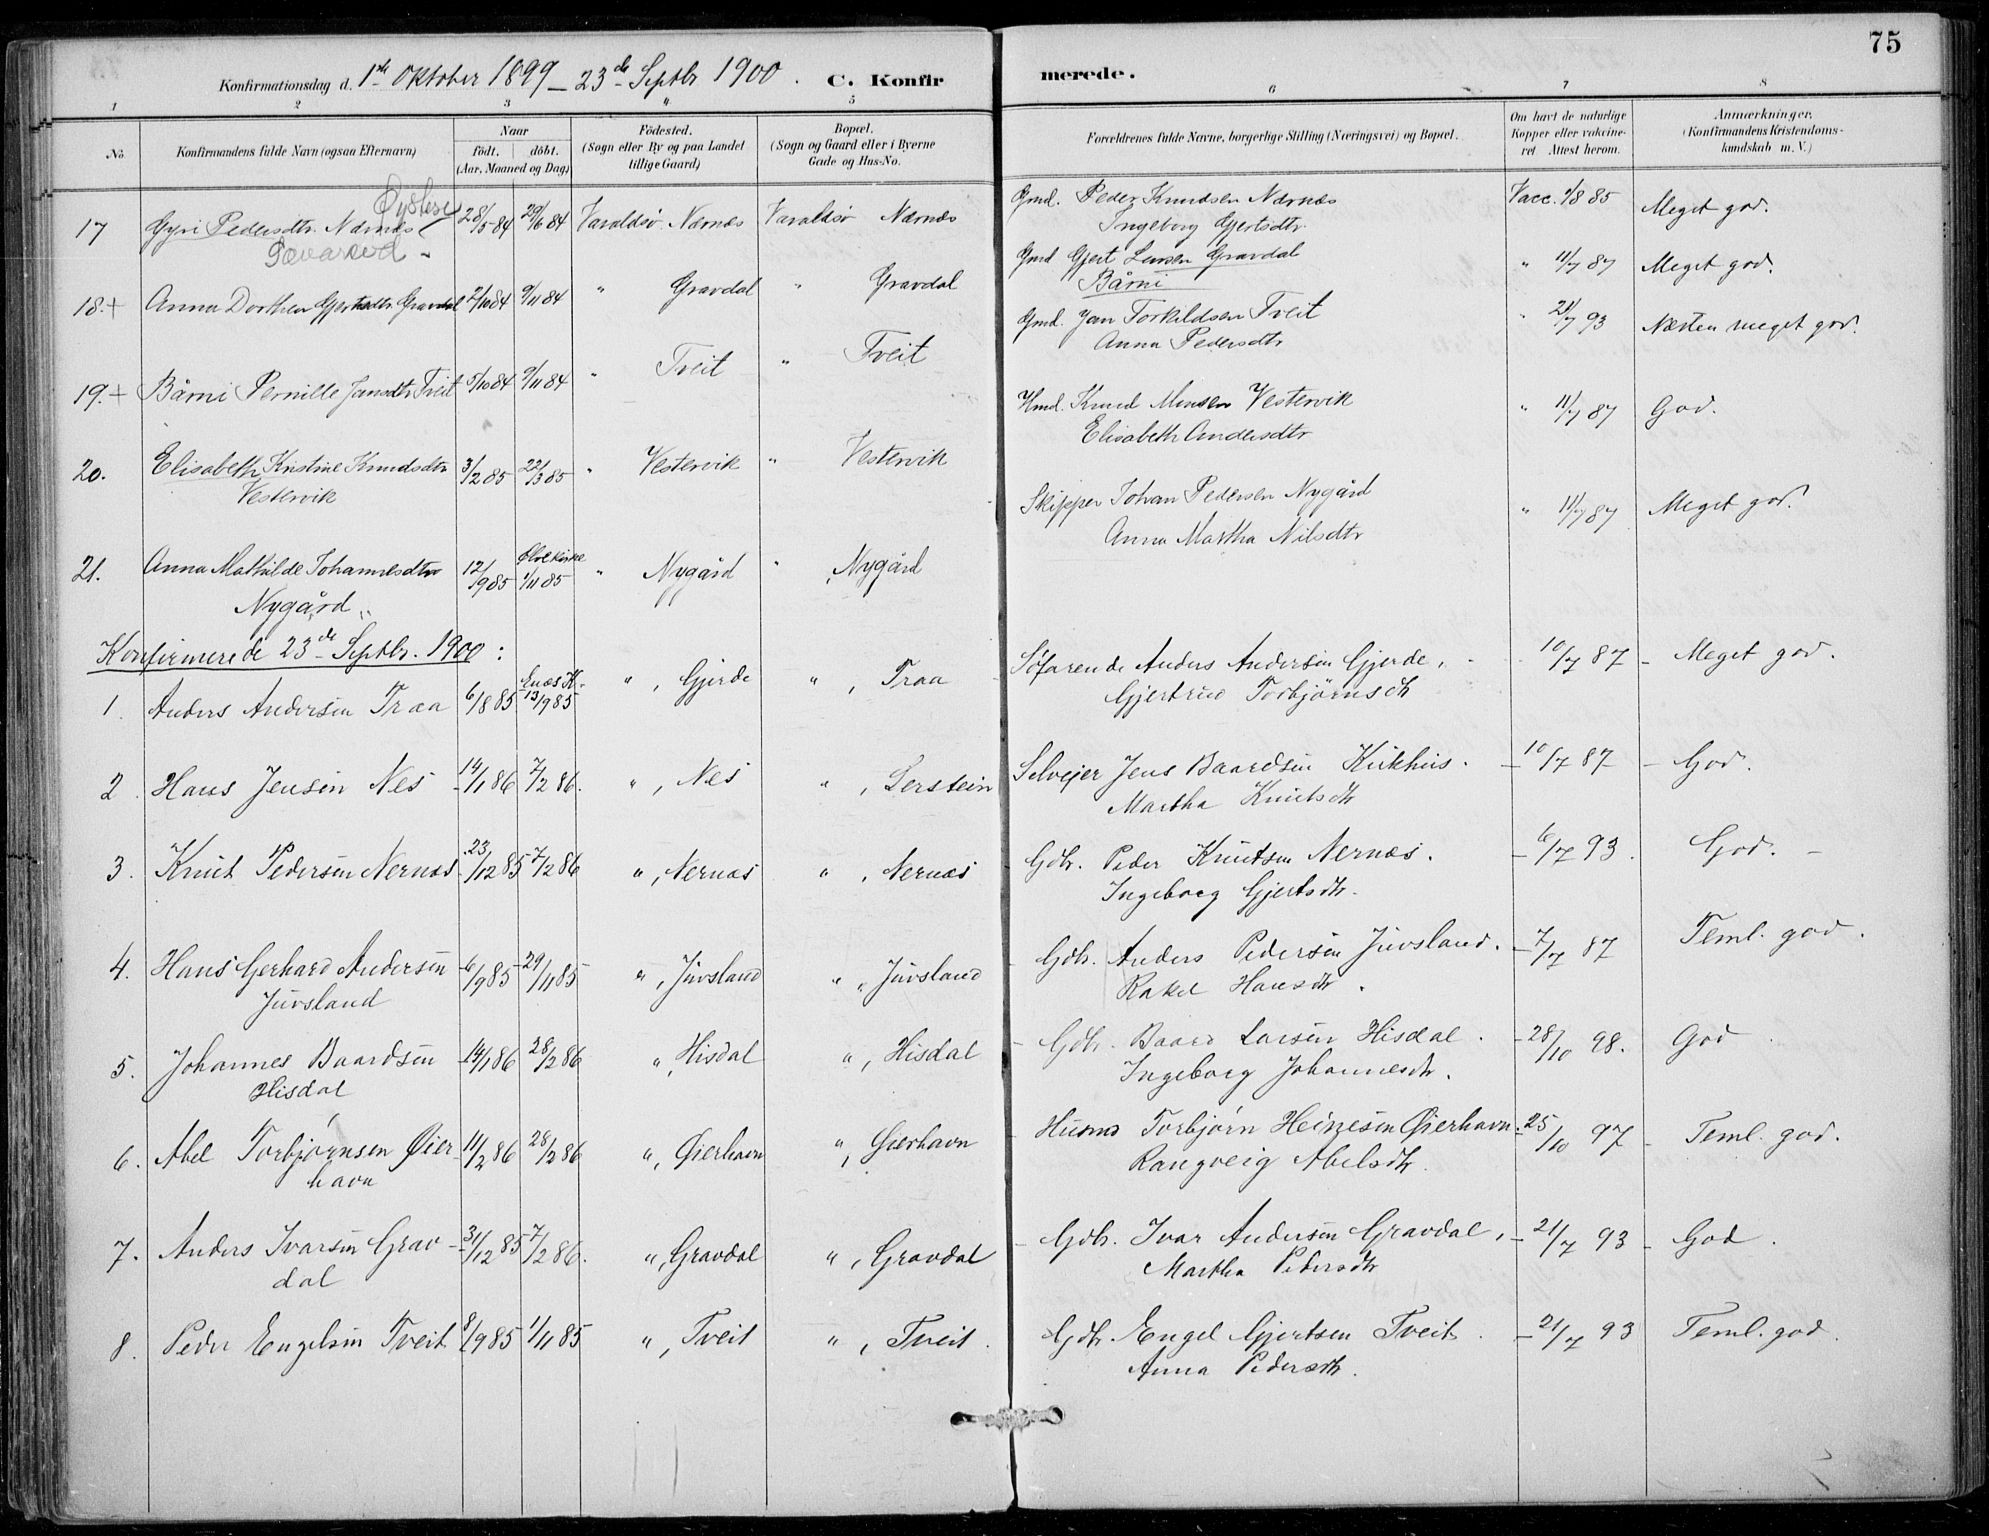 75
Konfirmationsdag d. 1ste Oktober 1899 – 23de Septbr 1900. C. Konfirmerede.
1 2 3 4 5 6 7 8
No.
Konfirmandens fulde Navn (ogsaa Efternavn)
Naar
født. døbt.
(Aar, Maaned og Dag)
Fødested.
(Sogn eller By og paa Landet
tillige Gaard)
Bopæl.
(Sogn og Gaard eller i Byerne
Gade og Hus-No.
Forældrenes fulde Navne, borgerlige Stilling (Næringsvei) og Bopæl.
Om havt de naturlige
Kopper eller vakcine-
ret. Attest herom.
Anmærkninger.
(Konfirmandens Kristendoms-
kundskab m. V.)
Øystese
17 Gyri Pedersdtr. Nærnæs 28/5 84 29/6 84 Varaldsø Nærnæs Varaldsø Nærnæs Gmd. Peder Knudsen Nærnæs Vacc. 1/8 85 Meget god.
Ingeborg Gjertsdtr.
18.+ Anna Dorthea Gjertsdtr Gravdal 2/10 84 9/11 84 " Gravdal " Gravdal Gmd Gjert Larsen Gravdal " 11/7 87 Meget god.
Bårni
19.+ Bårni Pernille Jansdtr Tveit 5/10 84 9/11 84 " Tveit " Tveit Gmd. Jan Torkildsen Tveit " 21/7 93 Næsten meget god.
Anna Pedersdtr
20. Elisabeth Kristine Knudsdtr 3/2 85 22/3 85 " Vestervik " Vestervik Hmd. Knud Monsen Vestervik " 11/7 87 God.
Vestervik Elisabeth Andersdtr
21. Anna Mathilde Johannesdtr 12/9 85 Ølve kirke 1/11 85 " Nygård " Nygård Skipper Johan Pedersen Nygård " 11/7 87 Meget god.
Nygård Anna Martha Nilsdtr
Konfirmerede 23de Septbr. 1900:
1. Anders Andersen Traa 6/8 85 Enæs K. 13/9 85 ", Gjerde ", Traa Søfarende Anders Andersen Gjerde, 10/7 87 – Meget god.
Gjertrud Torbjørnsdtr
2. Hans Jensen Nes 14/1 86 7/2 86. ", Nes ", Lerstein Selvejer Jens Baardsen Kirkhus. – 10/7 87 – God.
Martha Knutsdtr
3. Knut Pedersen Nernæs 23/12 85 7/2 86 ", Nernæs ", Nernæs Gdbr. Peder Knutsen Nernæs. – 6/7 93. God. –
Ingeborg Gjertsdtr.
4. Hans Gerhard Andersen 6/9 85 29/11 85 ", Jüvsland ", Jüvsland Gdbr. Anders Pedersen Jüvsland. – 7/7 87 Teml. god.
Jüvsland Rakel Hansdtr.
5. Johannes Baardsen 14/1 86 28/2 86 ", Hisdal ", Hisdal Gdbr. Baard Larsen Hisdal. – 28/10 98. God
Hisdal Ingeborg Johannesdtr.
6. Abel Torbjørnsen Øier 11/2 86 28/2 86 ", Øierhavn ", Øierhavn Husmd Torbjørn Heinesen Øierhavn. 25/10 97 – Teml. god.
havn Rangveig Abelsdtr.
7. Anders Ivarsen Grav 31/12 85 7/2 86. ", Gravdal ", Gravdal Gdbr. Ivar Andersen Gravdal, – 21/7 93 – God.
dal Martha Pedersdtr
8. Peder Engelsen Tveit 8/9 85 1/11 85 ", Tveit ", Tveit. Gdbr Engel Gjertsen Tveit. – 21/7 93 Teml. god.
Anna Pedersdtr.